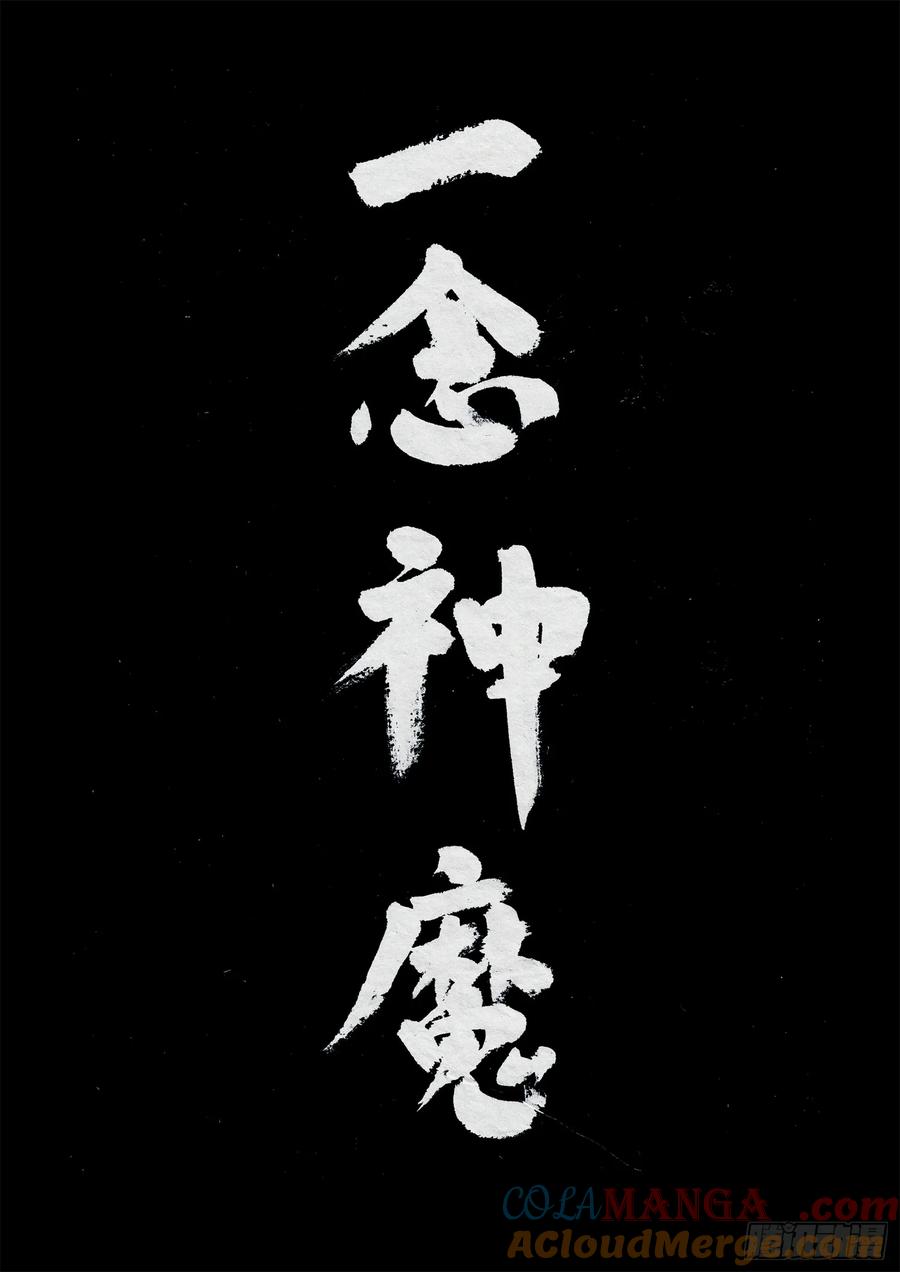 一念神魔
COLAMANGA.com
ACloudMerge.com
腾讯动漫